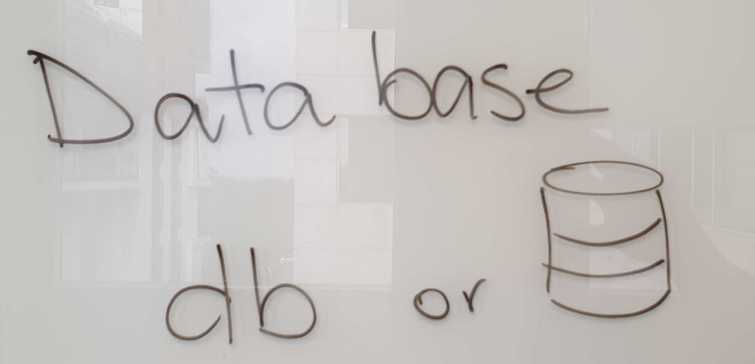 Database
db or